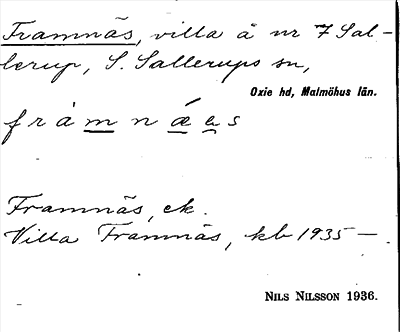 Framnäs, villa å nr 7 Sal-
lerup, S. Sallerups sn,
Oxie hd, Malmöhus län.
fràmnǽɐs
Framnäs, ek.
Villa Framnäs, kb 1935 —.
NILS NILSSON 1936.